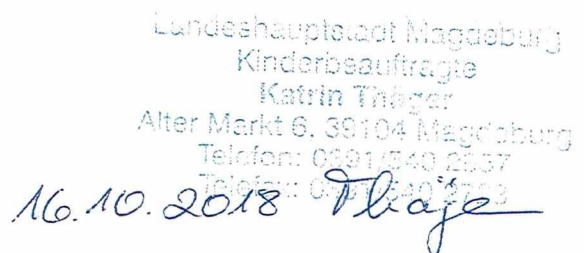 Landeshauptstadt Magdeburg
Kinderbeauftragte
Katrin Thäger
Alter Markt 6, 39104 Magdeburg
Telefon: 0391/540
Telefax:
16.10.2018 Thäger